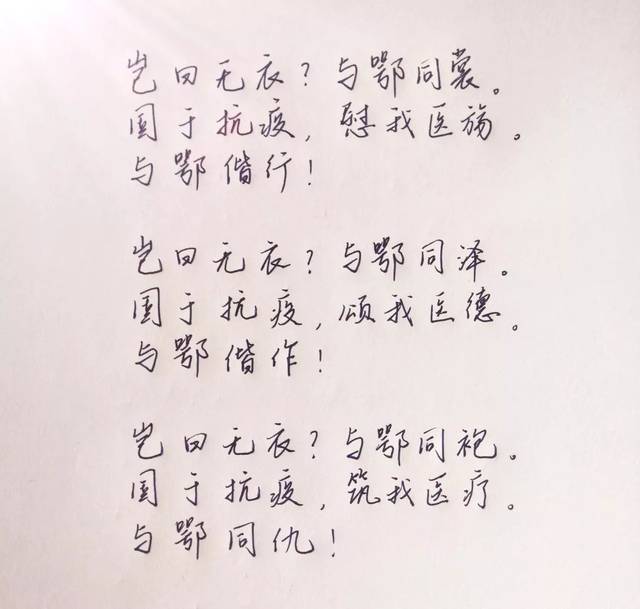 岂曰无衣？与鄂同裳。
国于抗疫，慰我医殇。
与鄂偕行！
岂曰无衣？与鄂同泽。
国于抗疫，颂我医德。
与鄂偕作！
岂曰无衣？与鄂同袍。
国于抗疫，筑我医疗。
与鄂同仇！